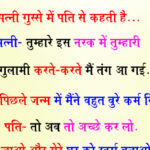 पत्नी गुस्से में पति से कहती है...
पत्नी- तुम्हारे इस नरक में तुम्हारी
गुलामी करते-करते मैं तंग आ गई.
पिछले जन्म में मैंने बहुत बुरे कर्म कि
पति- तो अब तो अच्छे कर लो.